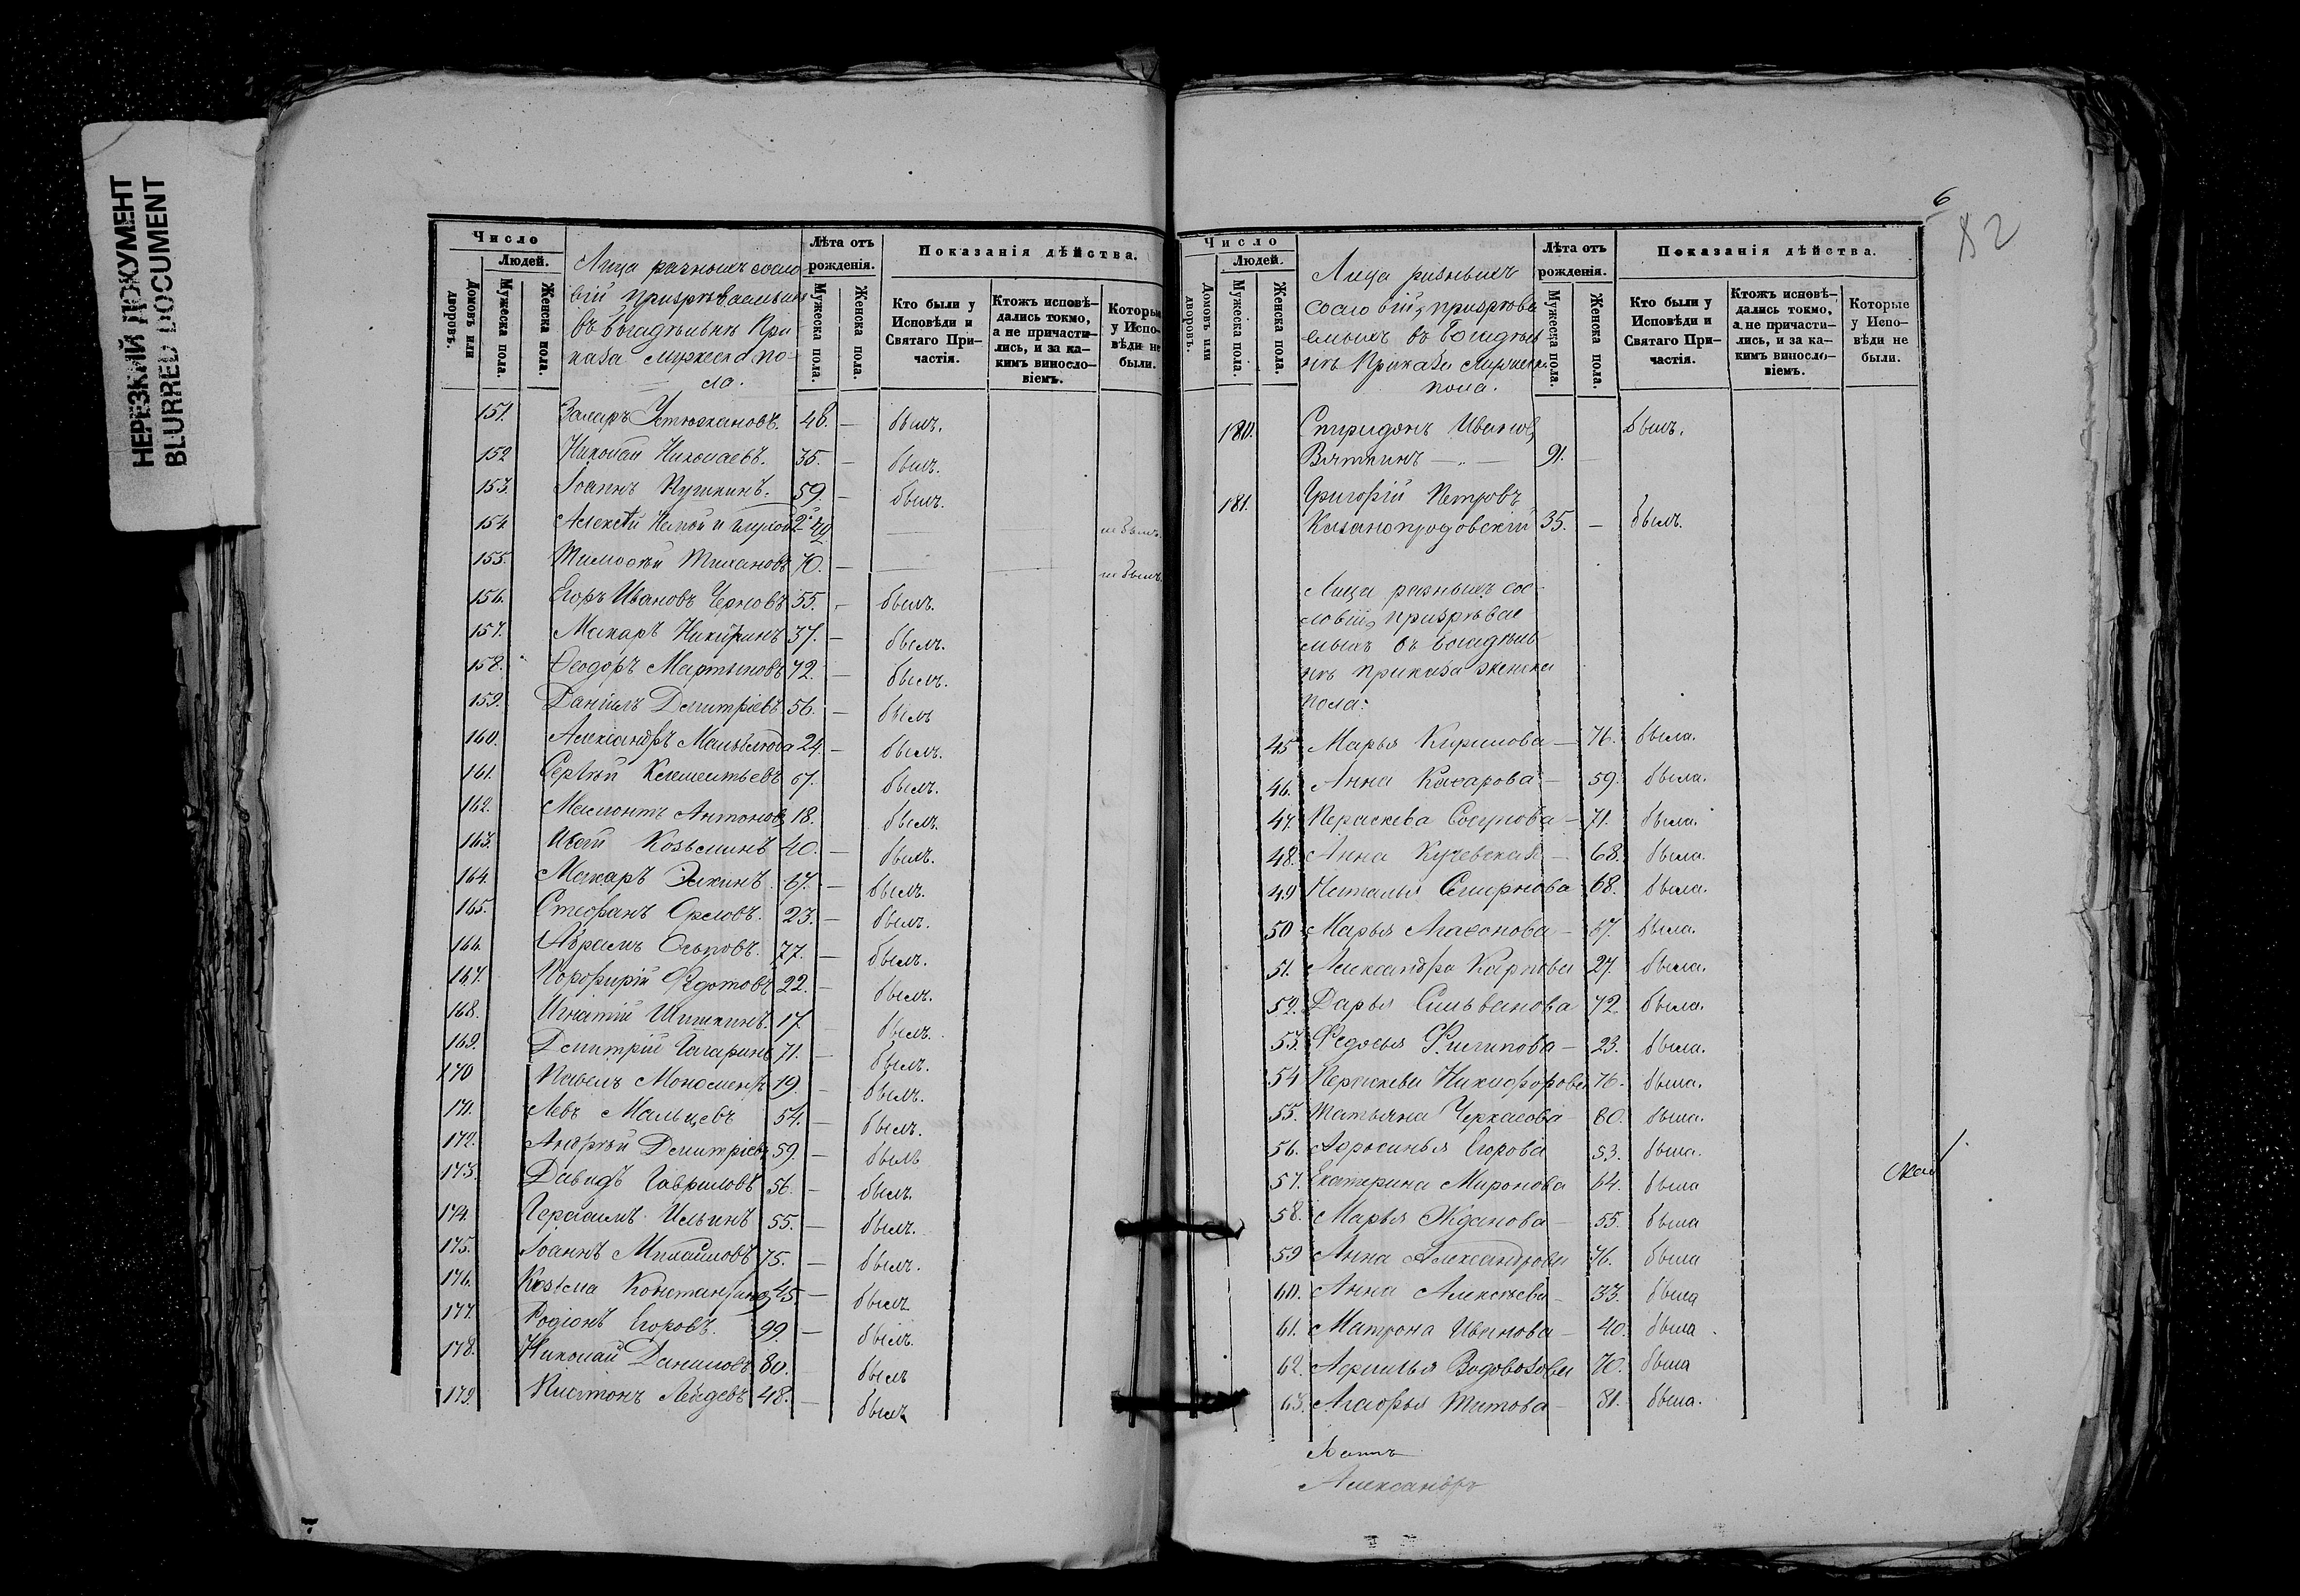 НЕРЕЗКИЙ ДОКУМЕНТ
BLURRED DOCUMENT
Число
Людей.
Домовъ или дворовъ.
Мужеска пола.
Женска пола.
Лица разныхъ сосло
вій призрѣваемыхъ
въ богадѣльнѣ При
каза мужеска по-
ла.
Лѣта отъ рожденія.
Мужеска пола.
Женска пола.
Показанія дѣйства.
Кто были у Исповѣди и Святаго При-частія.
Ктожъ исповѣ-дались токмо, а не причасти-лись, и за ка-кимъ винносло-віемъ.
Которые у Испо-вѣди не были.
151. Захаръ Устюжановъ. 48. — былъ.
152 Николай Николаевъ. 35. — былъ.
153. Іоаннъ Пушкинъ. 59. — былъ.
154 Алексѣй Немой и глухой 2й 49 — не былъ.
155. Тимофѣй Тихановъ 70. — не былъ.
156. Егоръ Ивановъ Черновъ 55. — былъ.
157. Макаръ Никитинъ 37. — былъ.
158. Ѳеодоръ Мартыновъ 72. — былъ.
159. Даніилъ Димитріевъ 56. — былъ
160. Александръ 24 — былъ.
161. Сергѣй Клементьевъ 67. былъ.
162. Мамонтъ Антоновъ 18. былъ.
163. Козьминъ 40. — былъ.
164. Макаръ 67. — былъ.
165. Стефанъ Орловъ. 23. — былъ.
166. Абрамъ Осиповъ. 77. — былъ.
167. Порфирій Федотовъ 22. — былъ.
168. Игнатій Шишкинъ. 17. былъ.
169. Димитрій Гагаринъ 71. — былъ.
170 Павелъ 19. — былъ.
171. Левъ Мальцевъ 54. — былъ.
172. Андрѣй Димитріевъ 59. — былъ
173. Давидъ Гавриловъ 56. — былъ.
174. Герасимъ Ильинъ 55. — былъ.
175. Іоаннъ Михайловъ 75. — былъ.
176. Козьма Константиновъ 45. — былъ
177. Родіонъ Егоровъ. 99. — былъ.
178. Николай Даниловъ 80. былъ
179. 48. — былъ
6
82
Число
Людей.
Домовъ или дворовъ.
Мужеска пола.
Женска пола.
Лица разныхъ
сословій, призрѣва
емыхъ въ Богадѣль
нѣ Приказа Мужеска
пола.
Лѣта отъ рожденія.
Мужеска пола.
Женска пола.
Показанія дѣйства.
Кто были у Исповѣди и Святаго При-частія.
Ктожъ исповѣ-дались токмо, а не причасти-лись, и за ка-кимъ винносло-віемъ.
Которые у Испо-вѣди не были.
180. Спиридонъ Ивановъ былъ.
Вяткинъ — 91. —
181. Григорій Петровъ
35. — былъ.
Лица разныхъ сос-
ловій, призрѣвае
мыхъ въ богадѣль
нѣ приказа женска
пола:
45 Марья Кирилова — 76. была.
46. Анна — 59. была.
47. Параскева — 71. была.
48. Анна Кучевская — 68. была.
49 Наталья Смирнова 68. была.
50 Марья Агафонова — 67. была.
51. Александра Карпова 27. была.
52. Дарья Сильванова 72. была.
53. Федосья Филипова — 23. была.
54 Параскева Никифорова 76. была.
55. Татьяна Черкасова 80. была.
56. Афросинья Егорова 53. была.
57. Екатерина Миронова 64. была
58. Марья Жданова — 55. была
59 Анна Александрова 76. была
60. Анна Алексѣева — 33. была
61. Матрона Иванова — 40. была.
62. Водовозова 70. была
63. Агафья Титова — 81. была.
Александръ